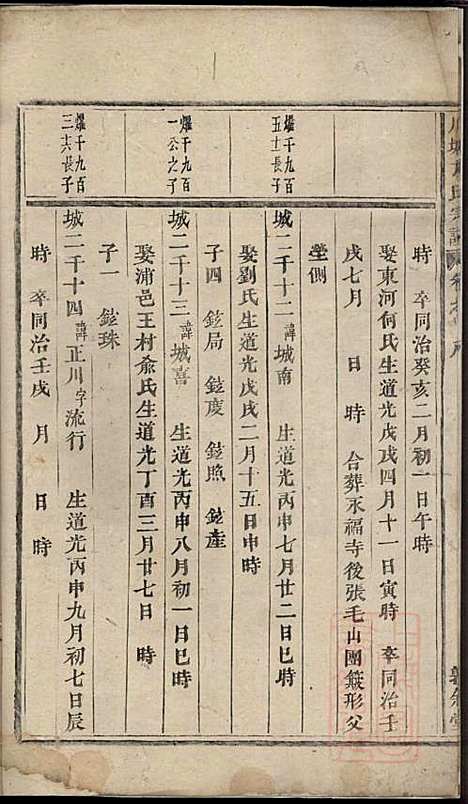 時　卒同治癸亥二月初一日午時
娶東河何氏生道光戊戌四月十一日寅時　卒同治壬
戌七月　日　時　合葬永福寺後張毛山團簸形父
塋側
燿千九百
五十長子
城二千十二諱城南　生道光丙申七月廿二日巳時
娶劉氏生道光戊戌二月十五日申時
子四　鉉局　鉉慶　鉉照　鉉產
燿千九百
一公之子
城二千十三諱城喜　生道光丙申八月初一日巳時
娶浦邑王村俞氏生道光丁酉三月廿七日　時
子一　鉉珠
燿千九百
三六長子
城二千十四諱正川字流行　生道光丙申九月初七日辰
時　卒同治壬戌　月　日　時